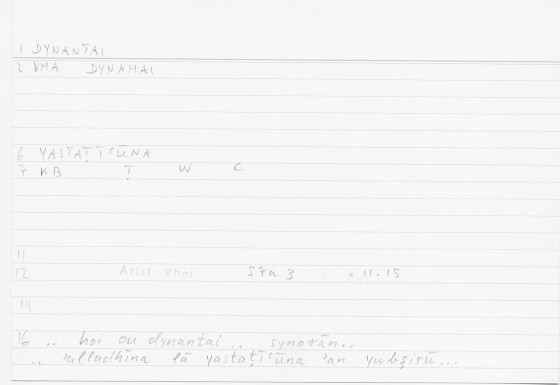 1 DYNANTAI
2 VMA DYNAMAI
6 YASTAṬĪʿŪNA
7 KB Ṭ W C
11
12 Arist Rhet Sra 3 11.15
14
16 .. hoi ou dynantai .. synorān..
.. alladhīna lā yastaṭīʿūna ʾan yubṣirū...